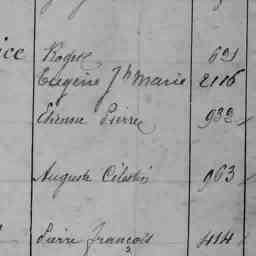 ice Roger 621
Eugène Jh Marie 2116
Etienne Pierre 932
Auguste Célestin 963
Pierre François 414